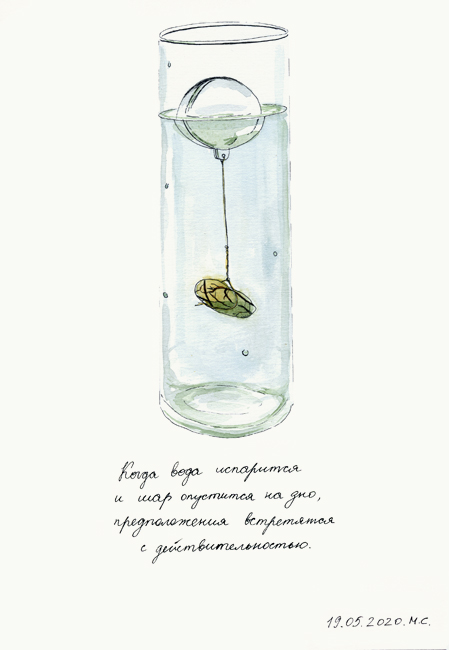 Когда вода испарится
и шар опустится на дно,
предположения встретятся
с действительностью.
19.05.2020. М.С.